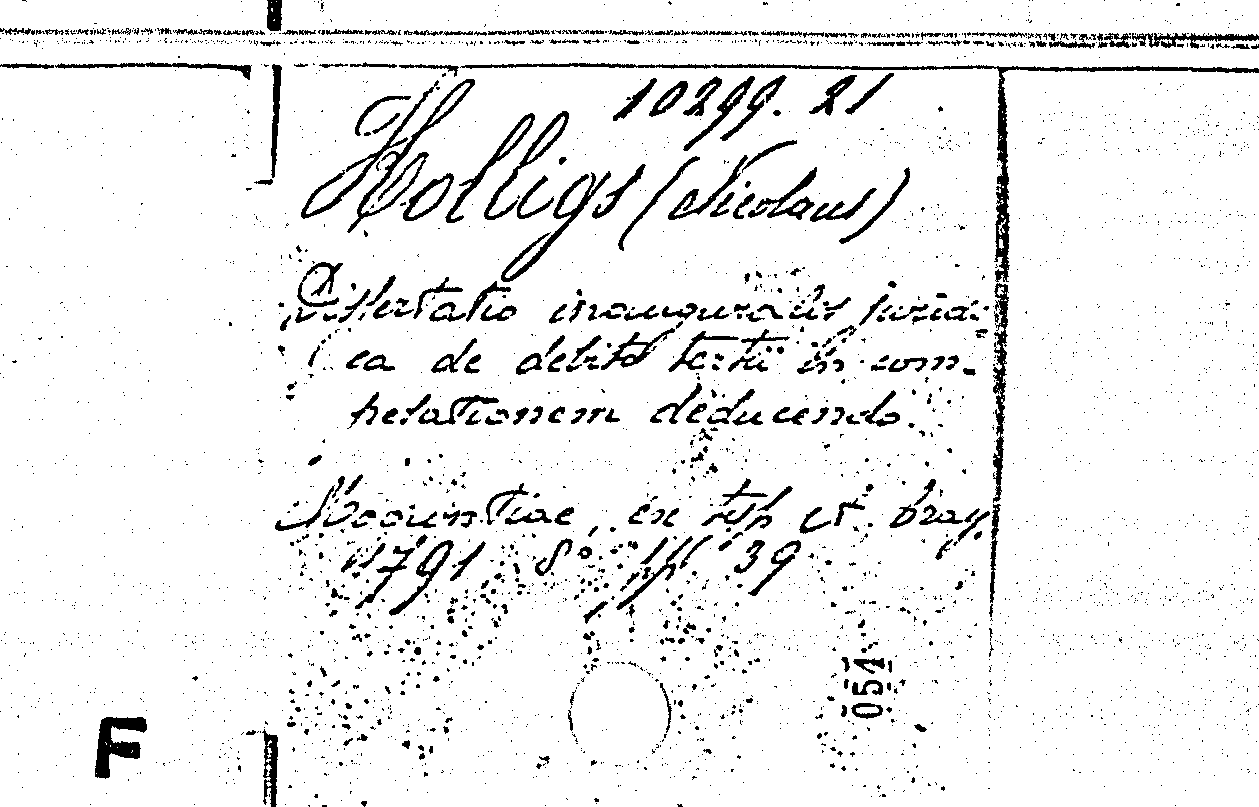 10299. 21
Holligs (Nicolaus)
Dissertatio inauguralis juridi-
ca de debito tertii in com-
pelationem deducendo.
Moguntiae, ex typ et bray.
1791 8° pp 39
054
F